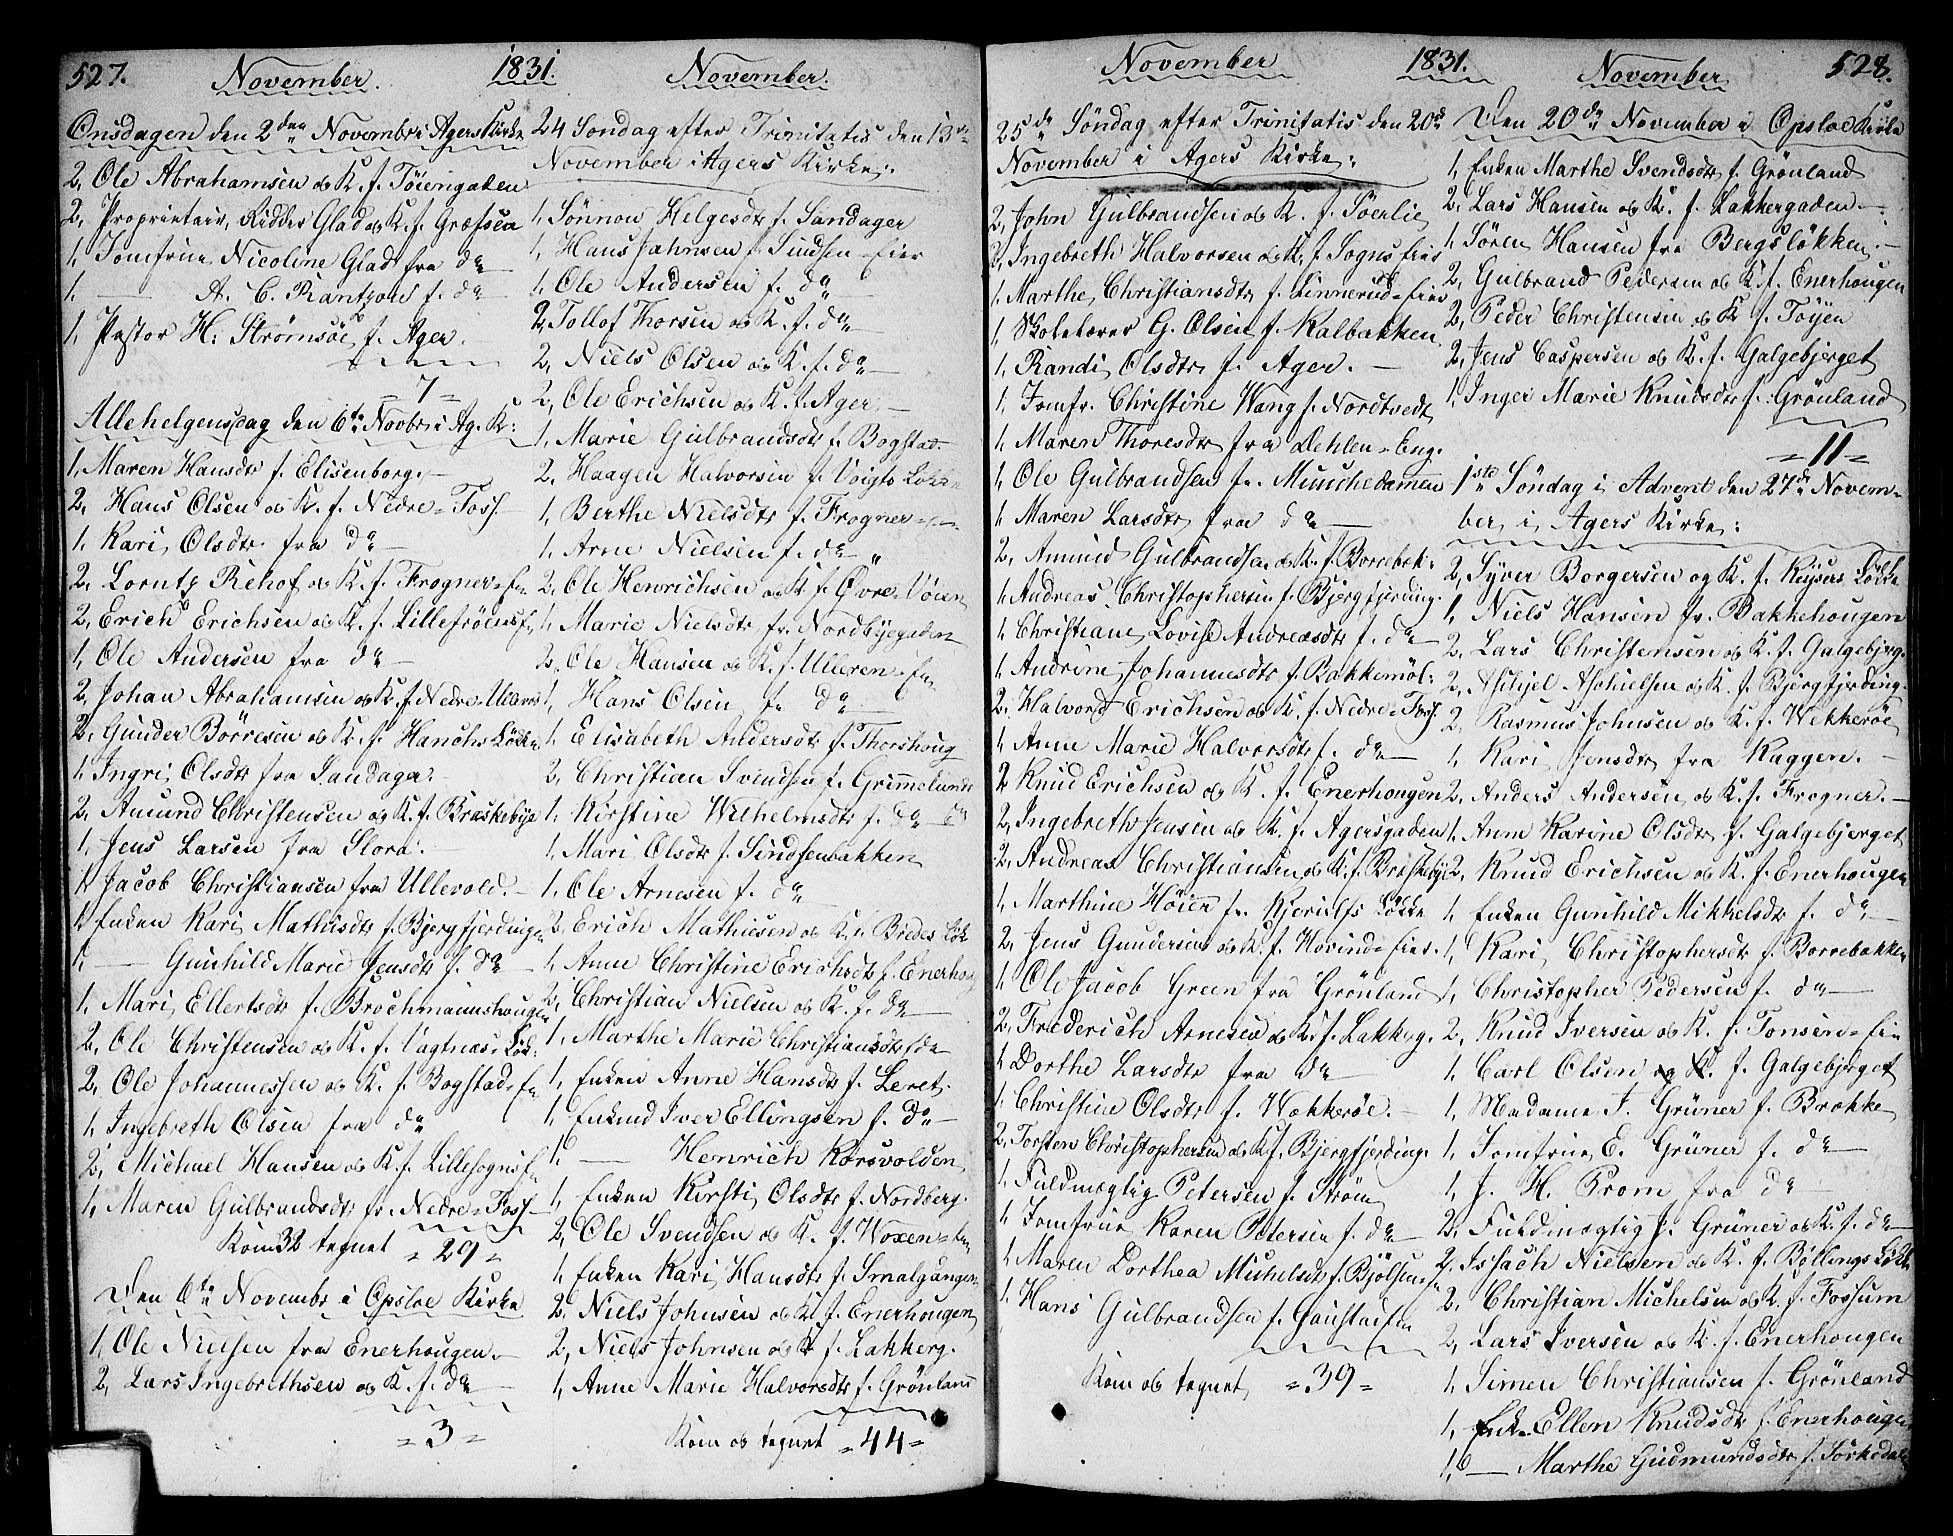 527. November. 1831. November.
Onsdagen den 2den Novembr i Agers Kirke
2, Ole Abrahamsen og K. f. Töiengaden
2, Proprietair, Ridder Glad og K. f. Græfsen
1, Jomfrue Nicoline Glad fra do
1, — A. C. Rantzous f. do
1, Pastor H: Strømsöe f. Ager.
7
Allehelgensdag den 6te Novbr i Ag. K:
1, Maren Hansdtr f. Elisenborg.
2, Hans Olsen og K. f. Nedre=Foss
1, Kari Olsdtr fra do
2, Lorntz Rehof og K. f. Frogner=
2, Erich Erichsen og K. f. Lillefröens
1, Ole Andersen fra do
2, Johan Abrahamsen og K. f. Nedre=Ullern
2, Gunder Börresen og K. f. Hanchs Löke
1, Ingri Olsdtr fra Sandager
2, Amund Christensen og K. f. Braskebye
1, Jens Larsen fra Slora.
1, Jacob Christiansen fra Ullevold.
1, Enken Kari Mathisdtr f. Bjergfjerdingen
1, — Gunhild Marie Jensdtr f. do
1, Mari Ellertsdtr f. Brochmannshougen
2, Ole Christensen og K. f. Vagtnas=Lök:
2, Ole Johannessen og K. f. Bogstad=
1, Ingebreth Olsen fra do
2, Michael Hansen og K. f. Lillesogns
1, Maren Gulbrandsdtr fr. Nedre=Foss
Kom 32 tegnet =29=
Den 6te Novembr i Opsloe Kirke
1, Ole Nielsen fra Enerhougen.
2, Lars Ingebrethsen og K. f. do
=3=
24 Söndag efter Trinitatis den 13de
November i Agers Kirke.
1, Sönnow Helgesdtr f. Sandager
1, Hans Jahnsen f. Sindsen=Eier
1, Ole Andersen f. do
2, Tollof Thorsen og K. f. do
2, Niels Olsen og K. f. do
2, Ole Erichsen og K. f. Ager.
1, Marie Gulbrandsdtr f. Bogstad
2, Haagen Halvorsen f. Voigts Lökk
1, Berthe Nielsdtr f. Frogner=
1, Arne Nielsen f. do
2, Ole Henrichsen og K. f. Øvre=Vöien
1, Marie Nielsdtr fr. Nordbyegaden
2, Ole Hansen og K. f. Ulleren=
1, Hans Olsen f. do
1, Elisabeth Andersdtr f. Thorshoug
2, Christian Svendsen f. Grimmelunds
1, Kirstine Wilhelmsdtr f. do
1, Mari Olsdtr f. Sindsenbakken
1, Ole Arnesen f. do
2, Erich Mathiesen og K. f. Bredes Lök
1, Anne Christine Erichsdtr f. Enerhoug
2, Christian Nielsen og K. f. do
1, Marthe Marie Christiansdtr f. do
1, Enken Anne Hansdtr f. Leret.
1, Enkemd Iver Ellingsen f. do
1, — Henrich Korsvolden
1, Enken Kirsti Olsdtr f. Nordberg.
2, Ole Svendsen og K. f. Woxen=
1, Enken Kari Hansdtr f. Smalgangen
2, Niels Johnsen og K. f. Enerhougen
2, Niels Johnsen og K. f. Lakkerg.
1, Anne Marie Halvorsdtr f. Grönland
Kom og tegnet =44=
November 1831. November 528.
25de Söndag efter Trinitatis den 20de
November i Agers Kirke:
2, John Gulbrandsen og K. f. Söerlie
2, Ingebreth Halvorsen og K. f. Sogns Eier
1, Marthe Christiansdtr f. Linnerud=Eier
1, Skolelærer G. Olsen f. Kalbakken
1, Randi Olsdtr f. Ager.
1, Jomfr. Christine Wang f. Nordtvedt
1, Maren Thoresdtr fra Dehlen=Eng.
1, Ole Gulbrandsen fr. Munchedammen
1, Maren Larsdtr fra do
2, Amund Gulbrandsen og K. f. Borrebek:
1, Andreas Christophersen f. Bjergfjerding.
1, Christiane Lovise Andreasdtr f. do
1, Andrine Johannesdtr f. Bakkemöl:
2, Halvord Erichsen og K. f. Nedre=Foss.
1, Anne Marie Halvorsdtr f. do
2, Knud Erichsen og K. f. Enerhougen
2, Ingebreth Jensen og K. f. Agersgaden
2, Andreas Christiansen og K. f. Briskebye
1, Marthine Höier fr. Kjerulfs Lökke
2, Jens Gundersen og K. f. Hovind=Eier.
1, Ole Jacob Green fra Grönland
2, Frederich Arnesen og K. f. Lakkeg.
1, Dorthe Larsdtr fra do
1, Christine Olsdtr f. Wækkeröe.
2, Torsten Christophersen og K. f. Bjergfjerding.
1, Fuldmægtig Petersen f. Ström
1, Jomfrue Karen Petersen f. do
1, Maren Dorthea Michelsdtr f. Bjölsen=
1, Hans Gulbrandsen f. Gaustad
Kom og tegnet =39=
Den 20de November i Opsloe Kirke
1, Enken Marthe Svendsdtr f. Grönland
2, Lars Hansen og K. f. Lakkergaden.
1, Sören Hansen fra Bergslökken.
2, Gulbrand Pedersen og K. f. Enerhougen
2, Peder Christensen og K f. Töyen
2, Jens Caspersen og K. f. Galgebjerget
1, Inger Marie Knudsdtr f. Grönland
=11=
1ste Söndag i Advent den 27de Novem=
ber i Agers Kirke:
2, Syver Borgersen og K. f. Keysers Lökke
1, Niels Hansen fr. Bakkehougen
2, Lars Christensen og K. f. Galgebjerg.
2, Aschjel Aschielsen og K. f. Bjergfjerding.
2, Rasmus Johnsen og K. f. Wekkeröe
1, Kari Jensdtr fra Kaggen.
2, Anders Andersen og K. f. Frogner.
1, Anne Karine Olsdtr f. Galgebjerget
2, Knud Erichsen og K. f. Enerhougen
1, Enken Gunhild Mikkelsdtr f. do
1, Kari Christophersdtr f. Borrebakken
1, Christopher Pedersen f. do
2, Knud Iversen og K. f. Tonsen=Eie
1, Carl Olsen og K. f. Galgebjerget
1, Madame F. Grüner f. Brække
1, Jomfrue E. Grüner f. do
1, J. H. Prom fra do
2, Fuldmægtig J. Grüner og K. f. do
2, Issach Nielsen og K. f. Böllings Lök
2, Christian Michelsen og K. f. Fossum
2, Lars Iversen og K. f. Enerhougen
1, Simen Christiansen f. Grönland
1, Enk. Ellen Knudsdtr f. Enerhougen
1, — Marthe Gudmundsdtr f. Sörkedalen